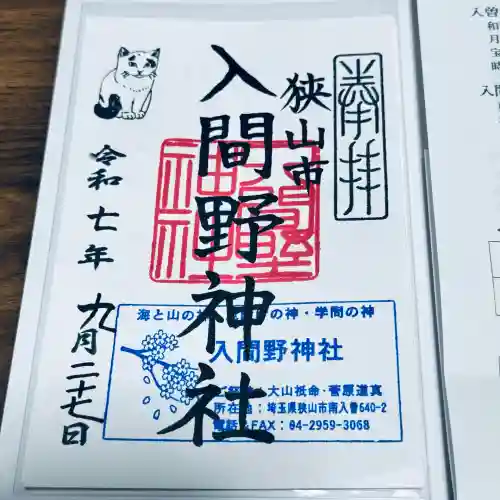 奉拝
狭山市
入間野神社
令和七年 九月二十七日
海と山の の神・学問の神
入間野神社
大山祇命・菅原道真
所在地：埼玉県狭山市南入曽640-2
電話・FAX：04-2959-3068
入曽
和
月
宝
時
入間